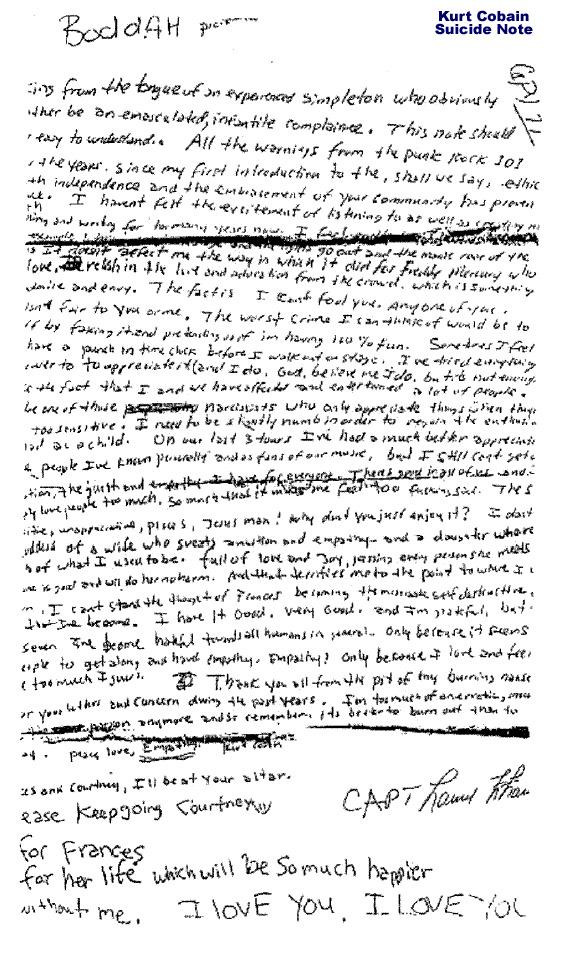 Kurt Cobain
Suicide Note
BoddAH
ing from the tongue of an experienced simpleton who obviously
ther be an emasculated, infantile complainee. This note should
easy to understand. All the warnings from the punk rock 101
the years. since my first introduction to the, shall we say, ethic
th independence and the embracement of your community has proven
ue. I havent felt the excitement of listening to as well as creating
and writing for too many years now. I feel
go out and the manic roar of the
affect me the way in which it did for freddy Mercury who
love, relish in the love and adoration from the crowd. which is something
admire and envy. The fact is I cant fool you. Any one of you.
isnt fair to you or me. The worst crime I can think of would be to
ff by faking it and pretending as if im having 100% fun. Sometimes I feel
have a punch in time clock before I walk out on stage. I've tried everything
ower to appreciate it (and I do, God, believe me I do, but it's not enough
the fact that I and we have affected and entertained a lot of people.
be one of those narcissists who only appreciate things when they
too sensitive. I need to be slightly numb in order to regain the enthusia
as a child. On our last 3 tours I've had a much better apprecia
people I've known personally and as fans of our music, but I still cant get
the guilt and empathy I have for everyone. There's good in all of us and
love people too much. So much that it makes me feel too fucking sad. The s
itive, unappreciative, pisces, Jesus man! why dont you just enjoy it? I dont
goddess of a wife who sweats ambition and empathy and a daughter who re
h of what I used to be. full of love and joy, kissing every person she meets
one is good and will do her no harm. And that terrifies me to the point to where I
I cant stand the thought of Frances becoming the miserable self destructive,
that Ive become. I have it Good. very Good. and I'm grateful, but
seven Ive become hateful towards all humans in general. Only because it seems
ople to get along and have empathy. Empathy! Only because I love and feel
too much I guess. Thank you all from the pit of my burning nause
or your letters and concern during the past years. I'm too much of an erratic, moo
person anymore and so remember, its better to burn out than to
peace, love, Empathy. Kurt Cobain
es and Courtney, I'll be at your altar.
ease Keep going Courtney
for Frances
for her life which will be so much happier
without me. I LOVE YOU. I LOVE YOU